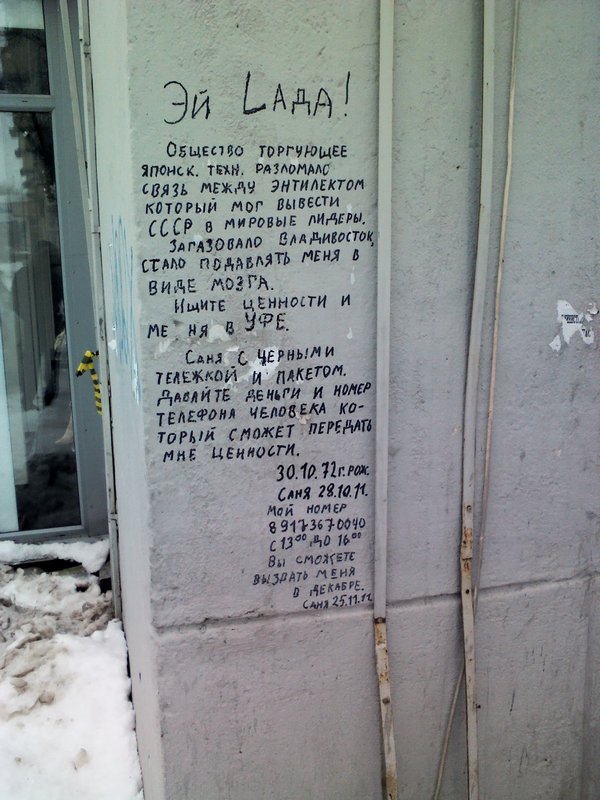 Эй Lада!
Общество торгующее
японск. техн. разломало
связь между энтилектом
который мог вывести
СССР в мировые лидеры.
Загазовало Владивосток,
стало подавлять меня в
виде мозга.
Ищите ценности и
ме ня в Уфе.
Саня с черными
тележкой и пакетом.
Давайте деньги и номер
телефона человека ко-
торый сможет передать
мне ценности.
30.10.72г.рож.
Саня 28.10.11.
Мой номер
89173670040
с 13⁰⁰ до 16⁰⁰
Вы сможете
выздать меня
в декабре.
Саня 25.11.11